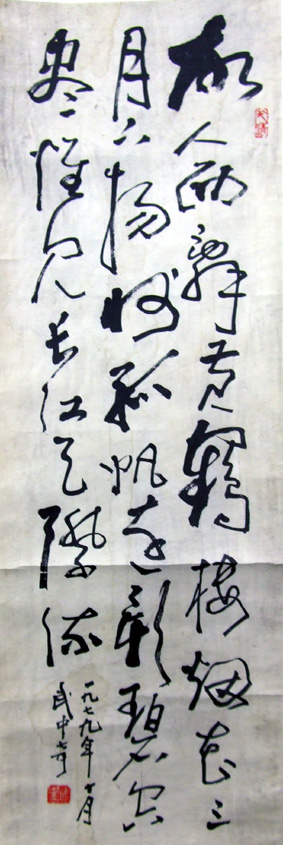 故人西辞黄鹤楼烟花三
月下扬州孤帆远影碧空
尽惟见长江天际流
一九七九年十月
武中奇